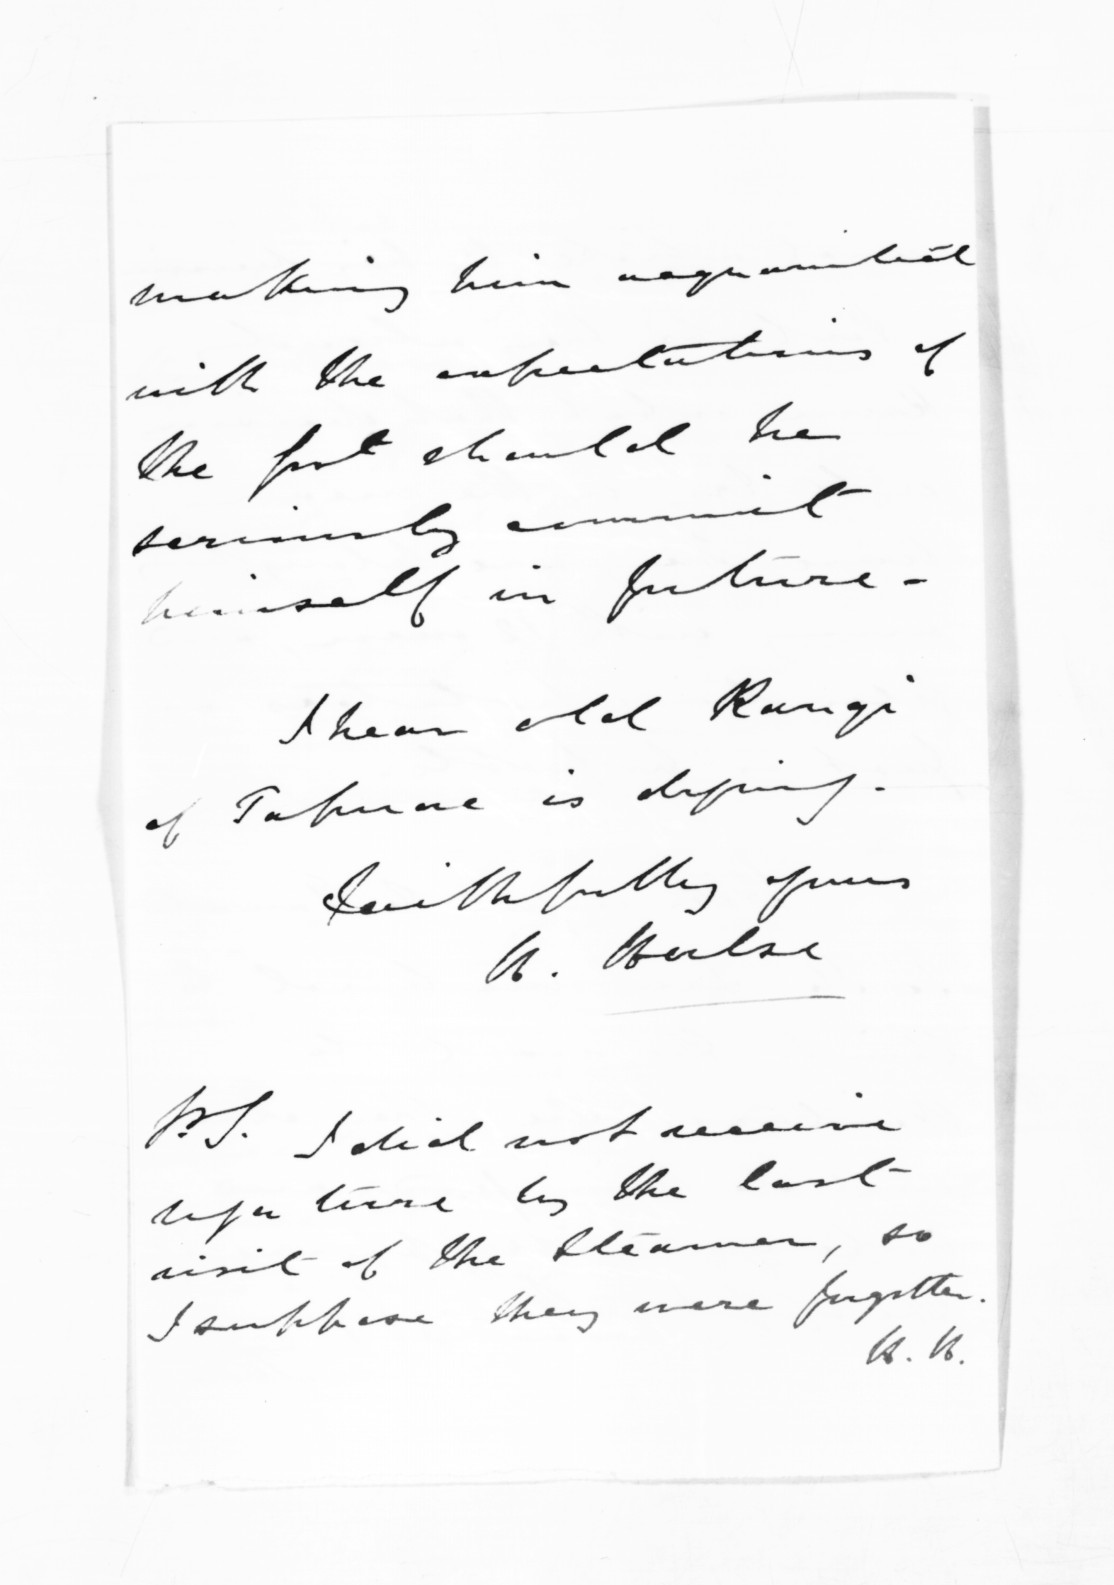 making him acquainted
with the expectations of
the Govt should he
seriously commit
himself in future -
I hear old Rangi
of Tapuae is dying.
Faithfully yours
H. Halse
P.S. I did not receive
by the last
visit of the Steamer, so
I suppose they were forgotten.
H. H.